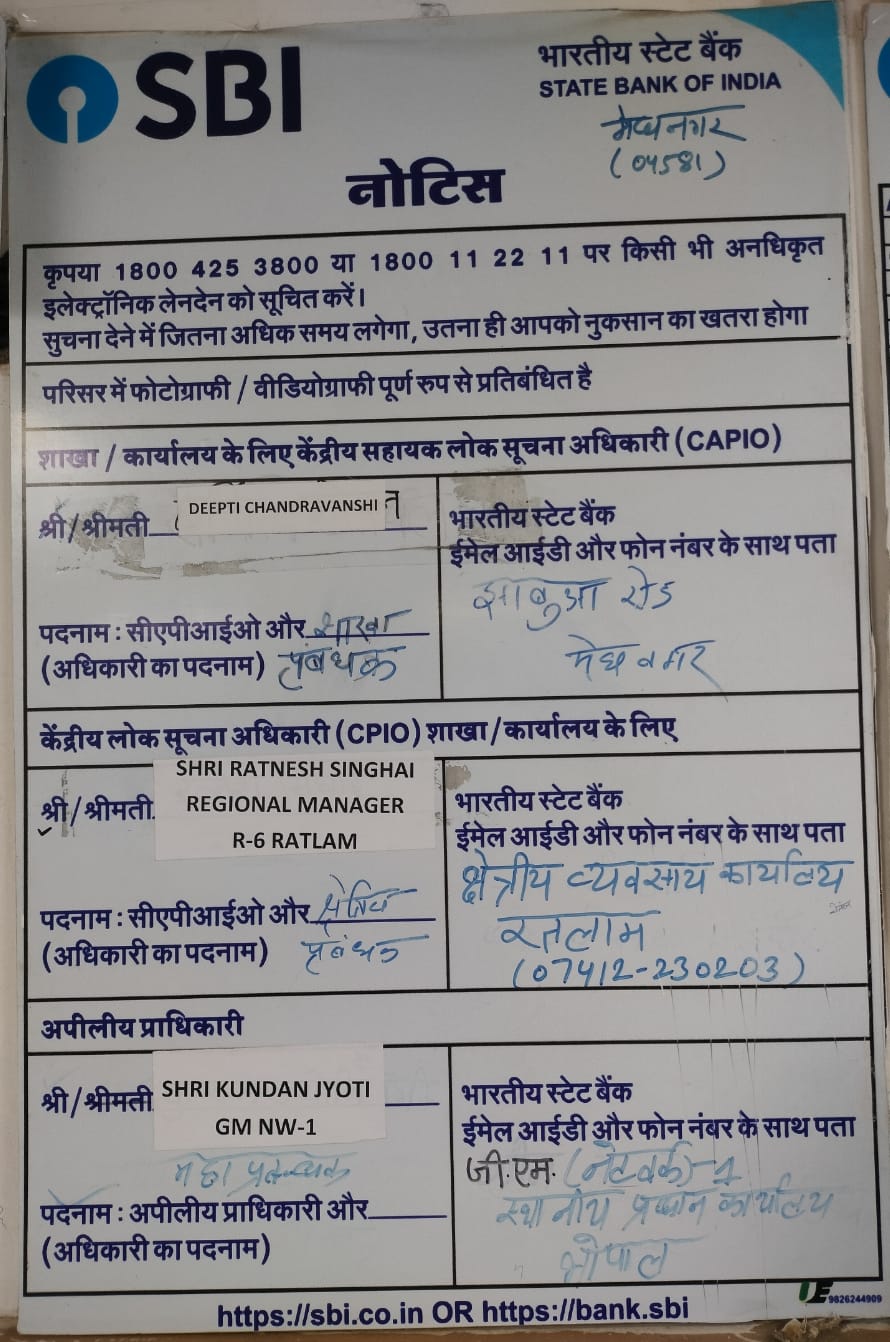 SBI
भारतीय स्टेट बैंक
STATE BANK OF INDIA
मेघनगर
(04581)
नोटिस
कृपया 1800 425 3800 या 1800 11 22 11 पर किसी भी अनधिकृत
इलेक्ट्रॉनिक लेनदेन को सूचित करें।
सुचना देने में जितना अधिक समय लगेगा, उतना ही आपको नुकसान का खतरा होगा
परिसर में फोटोग्राफी / वीडियोग्राफी पूर्ण रुप से प्रतिबंधित है
शाखा / कार्यालय के लिए केंद्रीय सहायक लोक सूचना अधिकारी (CAPIO)
श्री/श्रीमती DEEPTI CHANDRAVANSHI
भारतीय स्टेट बैंक
ईमेल आईडी और फोन नंबर के साथ पता
झाबुआ रोड
मेघनगर
पदनाम : सीएपीआईओ और शाखा
(अधिकारी का पदनाम) प्रबंधक
केंद्रीय लोक सूचना अधिकारी (CPIO) शाखा/कार्यालय के लिए
SHRI RATNESH SINGHAI
श्री/श्रीमती REGIONAL MANAGER
R-6 RATLAM
भारतीय स्टेट बैंक
ईमेल आईडी और फोन नंबर के साथ पता
क्षेत्रीय व्यवसाय कार्यालय
रतलाम
(07412-230203)
पदनाम : सीएपीआईओ और क्षेत्रिय
(अधिकारी का पदनाम) प्रबंधक
अपीलीय प्राधिकारी
श्री/श्रीमती SHRI KUNDAN JYOTI
GM NW-1
महा प्रबन्धक
पदनाम : अपीलीय प्राधिकारी और
(अधिकारी का पदनाम)
भारतीय स्टेट बैंक
ईमेल आईडी और फोन नंबर के साथ पता
जी.एम. (नेटवर्क)-1
स्थानीय प्रधान कार्यालय
भोपाल
https://sbi.co.in OR https://bank.sbi
UE 9826244909